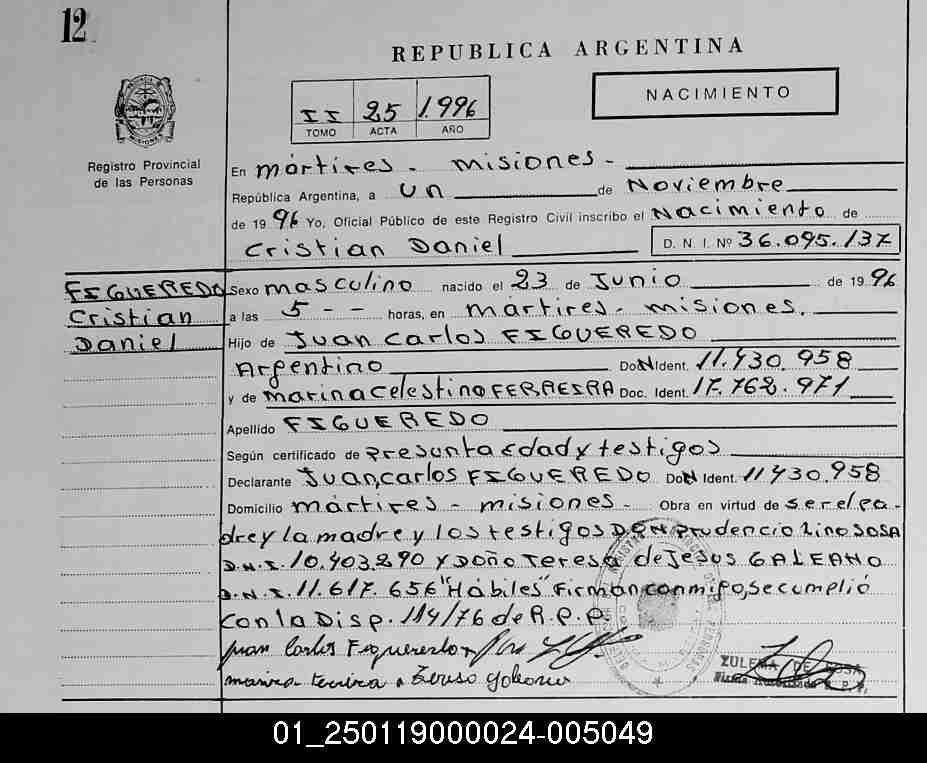 12
REPUBLICA ARGENTINA
II 25 1.996
TOMO ACTA AÑO
NACIMIENTO
Registro Provincial
de las Personas
En mártires - misiones -
República Argentina, a un de Noviembre
de 1996 Yo, Oficial Público de este Registro Civil inscribo el Nacimiento de
Cristian Daniel D. N. I. Nº 36.095.137
FIGUEREDO
Cristian
Daniel
Sexo masculino nacido el 23 de Junio de 1996
a las 5 - - horas, en mártires - misiones.
Hijo de Juan Carlos FIGUEREDO
Argentino Doc Ident. 11.430.958
y de marina Celestina FERREIRA Doc. Ident. 17.762.971
Apellido FIGUEREDO
Según certificado de Presunta edad y testigos
Declarante Juan carlos FIGUEREDO Ident. 11430.958
Domicilio mártires - misiones - Obra en virtud de ser el pa-
dre y la madre y los testigos DON Prudencio Lino SOSA
D.N.I. 10.403.290 y Doña Teresa de Jesus GALEANO
D.N.I. 11.617.656 "Hábiles" Firman conmigo, se cumplió
con la Disp. 114/76 de R.P.P.
Juan Carlos Figueredo
ZULEMA DE SOSA
01_250119000024-005049